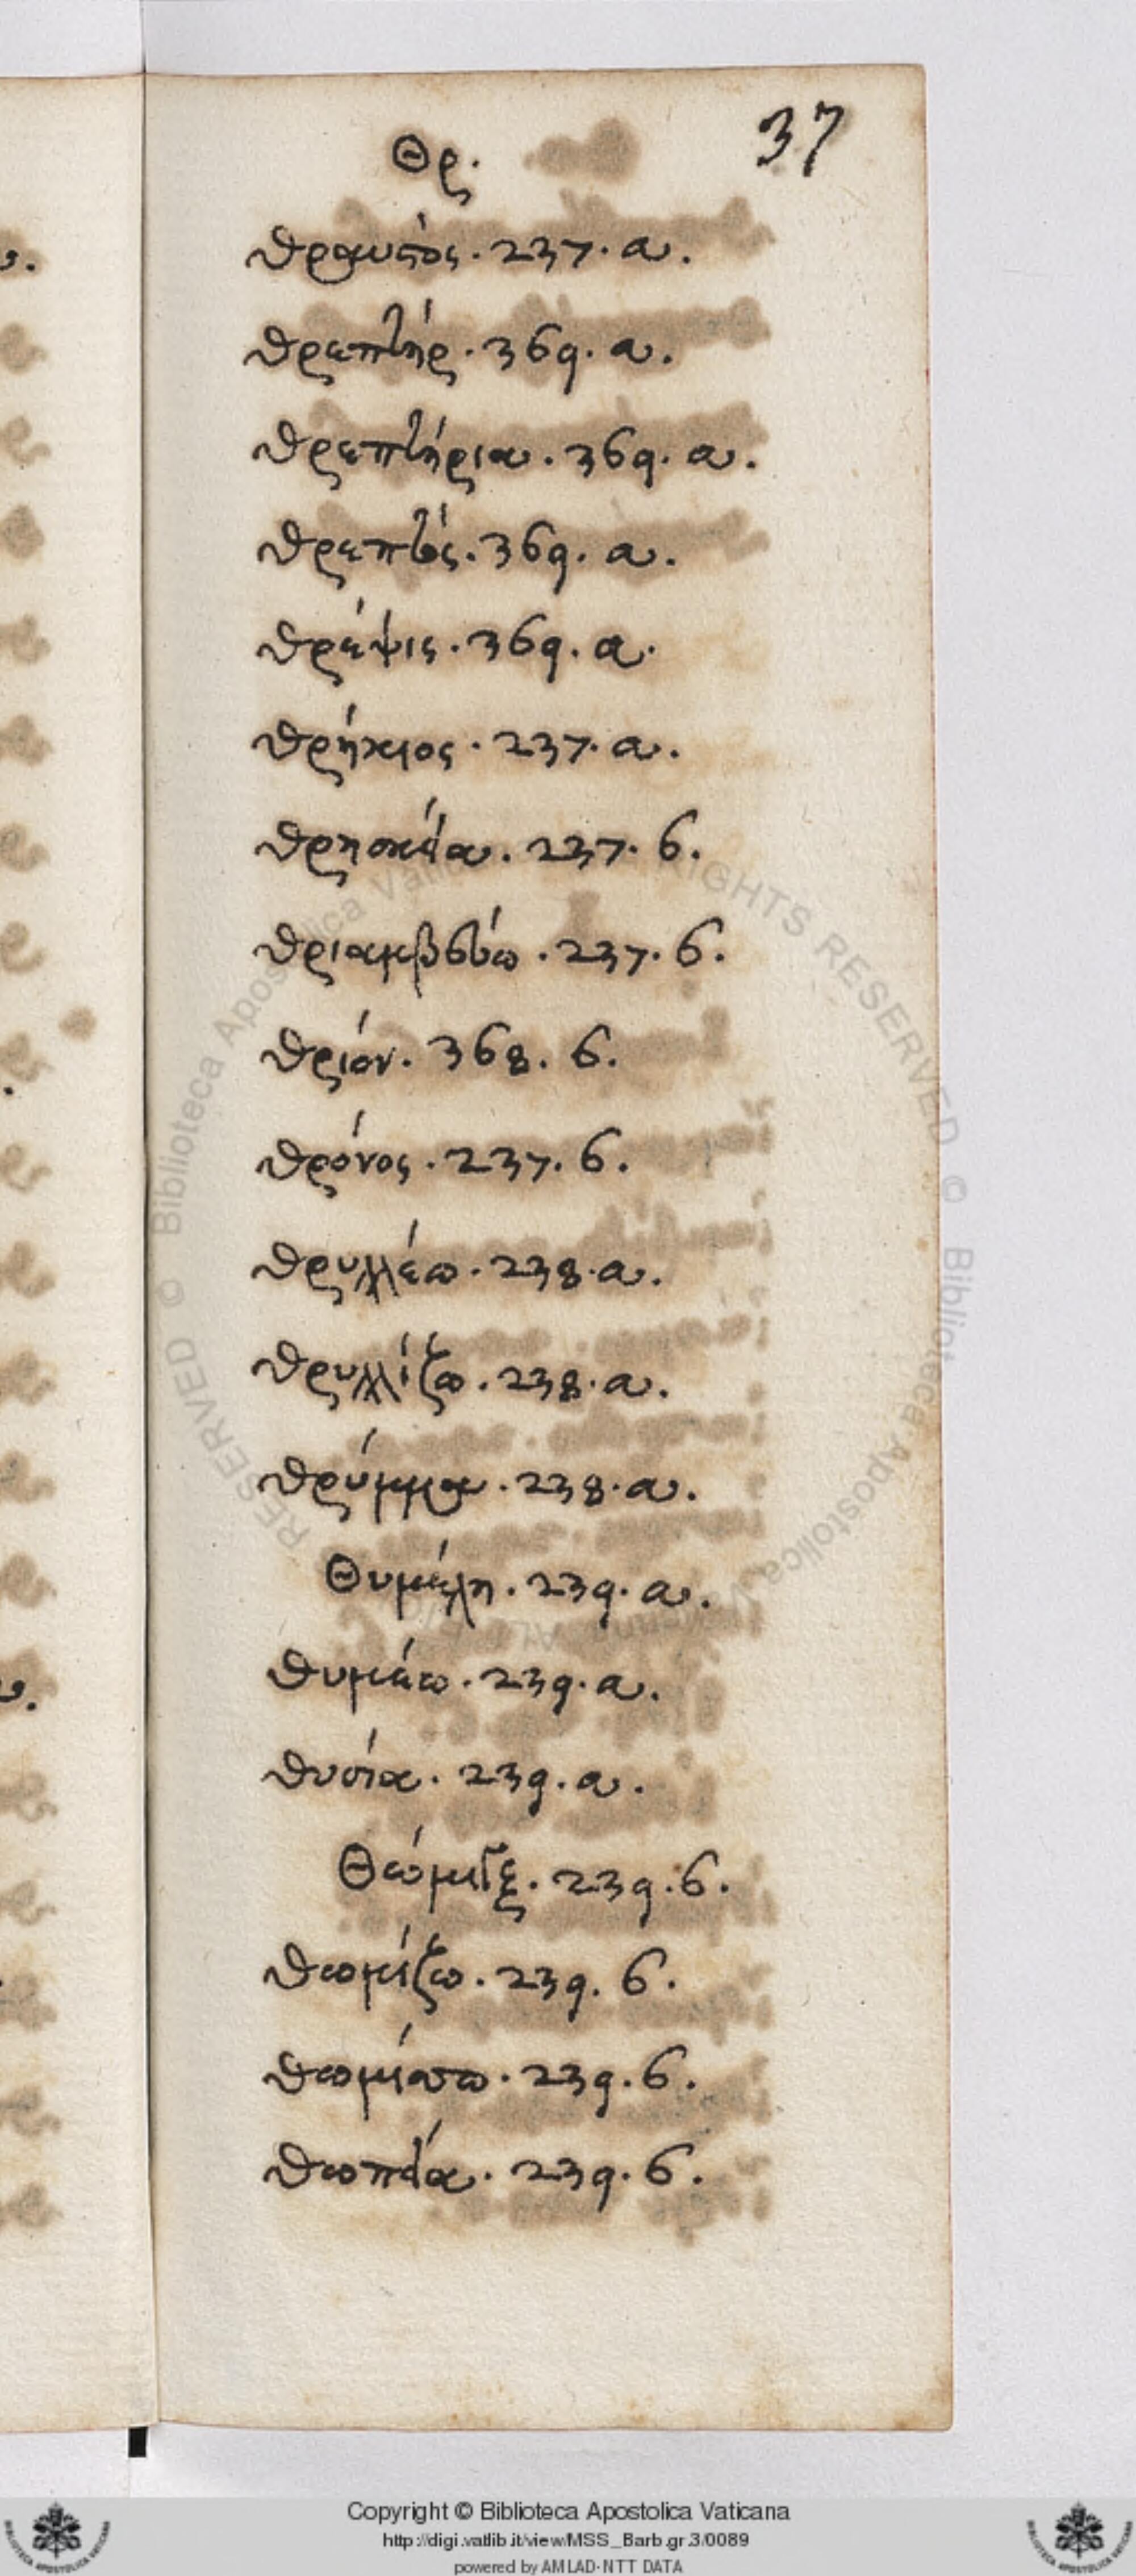 37
Θρ.
θραυστός. 237. α.
θρεπτήρ. 369. α.
θρεπτήρια. 369. α.
θρεπτός. 369. α.
θρέψις. 369. α.
θρήκιος. 237. α.
θρησκεία. 237. β.
θριαμβεύω. 237. β.
θριόν. 368. β.
θρόνος. 237. β.
θρυλλέω. 238. α.
θρυλλίζω. 238. α.
θρύμμα. 238. α.
Θυμέλη. 239. α.
θυμέω. 239. α.
θυσία. 239. α.
Θώμιγξ. 239. β.
θωμίζω. 239. β.
θωμίσσω. 239. β.
θωπεία. 239. β.
Copyright © Biblioteca Apostolica Vaticana
http://digi.vatlib.it/view/MSS_Barb.gr.3/0089
powered by AMLAD-NTT DATA